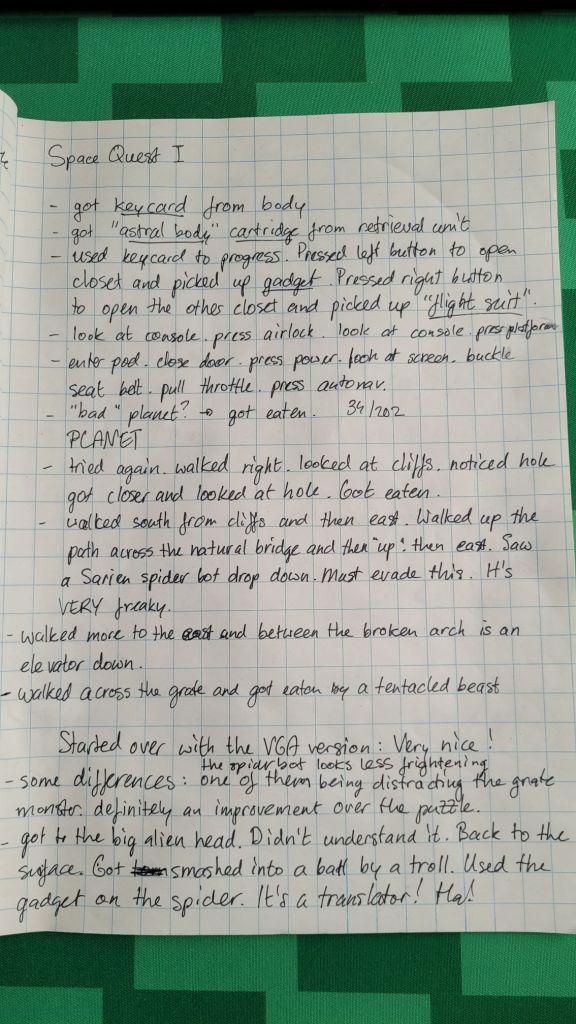 Space Quest I
- got keycard from body
- got "astral body" cartridge from retrieval unit
- used keycard to progress. Pressed left button to open
closet and picked up gadget. Pressed right button
to open the other closet and picked up "flight suit".
- look at console. press airlock. look at console. press platform
- enter pod. close door. press power. look at screen. buckle
seat belt. pull throttle. press autonav.
- "bad" planet? → got eaten. 34/202
PLANET
- tried again. walked right. looked at cliffs. noticed hole
got closer and looked at hole. Got eaten.
- walked south from cliffs and then east. Walked up the
path across the natural bridge and then "up". then east. Saw
a Sarien spider bot drop down. Must evade this. It's
VERY freaky.
- walked more to the east and between the broken arch is an
elevator down.
- walked across the grate and got eaten by a tentacled beast
Started over with the VGA version: Very nice!
the spider bot looks less frightening
- some differences: one of them being distracting the grate
monster. definitely an improvement over the puzzle.
- got to the big alien head. Didn't understand it. Back to the
surface. Got smashed into a ball by a troll. Used the
gadget on the spider. It's a translator! Ha!